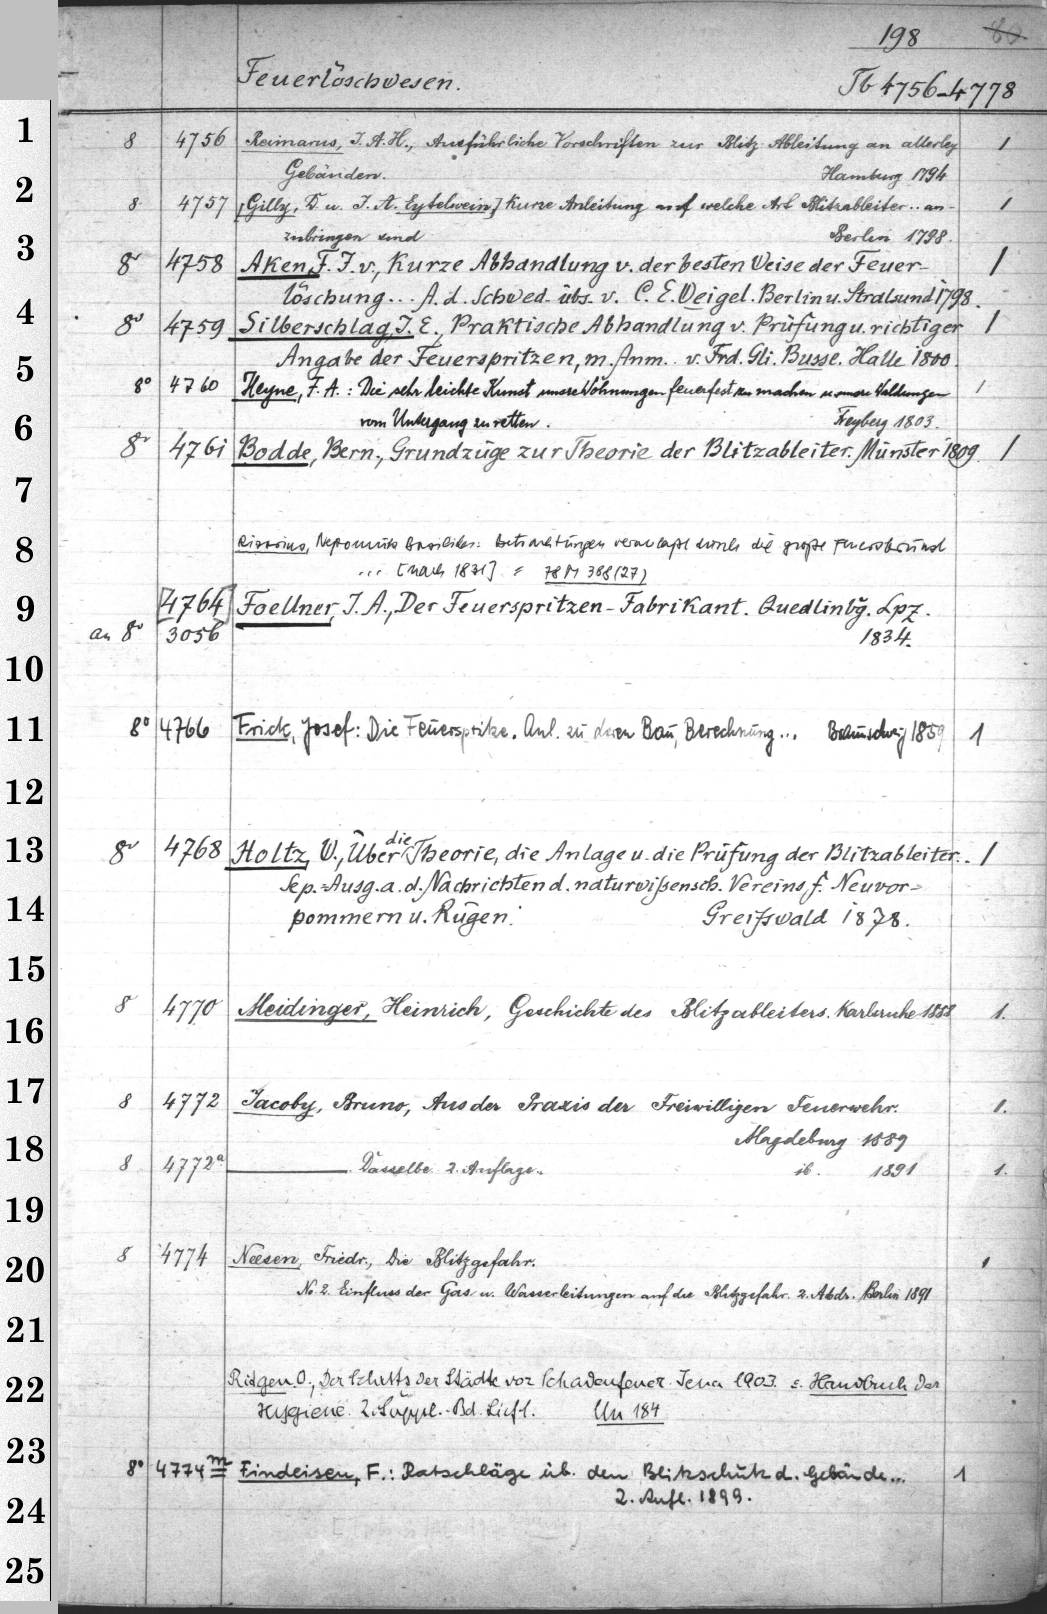 198 80
Feuerlöschwesen. Tb 4756-4778
1
8 4756 Reimarus, J. A. H., Ausführliche Vorschriften zur Blitz Ableitung an allerley 1
Gebäuden. Hamburg 1794
2
8 4757 [Gilly, D. u. J. A. Eytelwein,] Kurze Anleitung auf welche Art Blitzableiter .. an- 1
zubringen sind Berlin 1798.
3
8° 4758 Aken, F. J. v., Kurze Abhandlung v. der besten Weise der Feuer- 1
löschung... A. d. Schwed. übs. v. C. E. Weigel. Berlin u. Stralsund 1798.
4
8° 4759 Silberschlag, J. E., Praktische Abhandlung v. Prüfung u. richtiger 1
Angabe der Feuerspritzen, m. Anm. v. Frd. Gli. Busse. Halle 1800.
5
8° 4760 Heyne, F. A. : Die sehr leichte Kunst unsere Wohnungen feuerfest zu machen u. unsere Waldungen 1
vom Untergang zu retten. Freyberg 1803.
6
8° 4761 Bodde, Bern., Grundzüge zur Theorie der Blitzableiter. Münster 1809 1
7
8
Nepomuk Basilides: Betrachtungen veranlaßt durch die große Feuersbrunst
... [nach 1831] = 78 M 388(27)
9
[4764] Foellner, J. A., Der Feuerspritzen-Fabrikant. Quedlinbg. Lpz.
an 8° 3056 1834.
10
11
8° 4766 Frick, Josef: Die Feuerspritze. Anl. zu deren Bau, Berechnung ... Braunschweig 1859 1
12
13
8° 4768 Holtz, W., Über die Theorie, die Anlage u. die Prüfung der Blitzableiter.. 1
Sep.-Ausg. a. d. Nachrichten d. naturwißensch. Vereins f. Neuvor-
14
pommern u. Rügen. Greifswald 1878.
15
8 4770 Meidinger, Heinrich, Geschichte des Blitzableiters. Karlsruhe 1888 1.
16
17
8 4772 Jacoby, Bruno, Aus der Praxis der Freiwilligen Feuerwehr. 1.
Magdeburg 1889
18
8 4772a Dasselbe 2. Auflage. ib. 1891 1.
19
8 4774 Neesen, Friedr., Die Blitzgefahr. 1
20
No. 2. Einfluss der Gas u. Wasserleitungen auf die Blitzgefahr. 2. Abdr. Berlin 1891
21
22
Ritgen. O., Der Schutz der Städte vor Schadenfeuer. Jena 1903. s. Handbuch der
Hygiene. 2. Suppl.-Bd. Lief 1. Un 184
23
8° 4774m Findeisen, F.: Ratschläge üb. den Blitzschutz d. Gebäude... 1
2. Aufl. 1899.
24
25